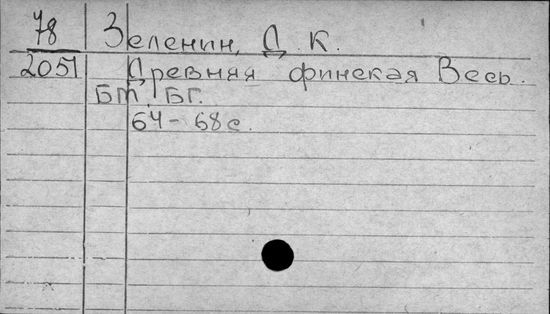 78 Зеленин, Д. К.
2051 Древняя финская Весь.
Бт, Бг.
64-68 с.